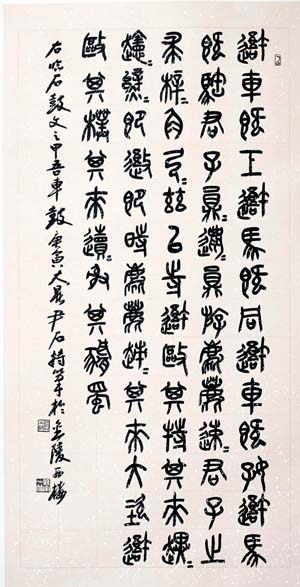 吾車既工吾馬既同吾車既好吾馬
既䮲君子員邋員斿麀鹿速君子之
求牸角弓茲以寺吾敺其特其來趩
即御即時麀鹿趚其來大次吾
敺其樸其來䢱射其豜蜀
右臨石鼓文之甲吾車鼓庚寅大暑尹石持筆於金陵西樓